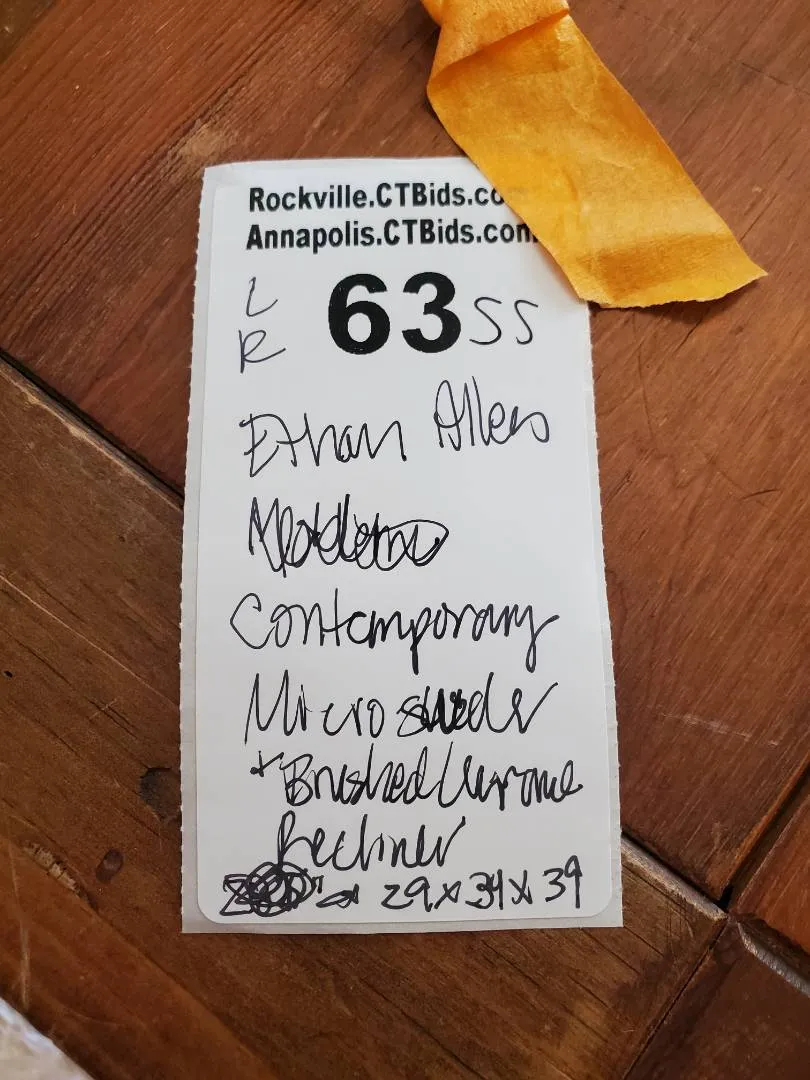 Rockville.CTBids.co
Annapolis.CTBids.com
L
R
63 SS
Ethan Allen
Contemporary
Microsuede
+ Brushed Chrome
Recliner
29 x 34 x 39